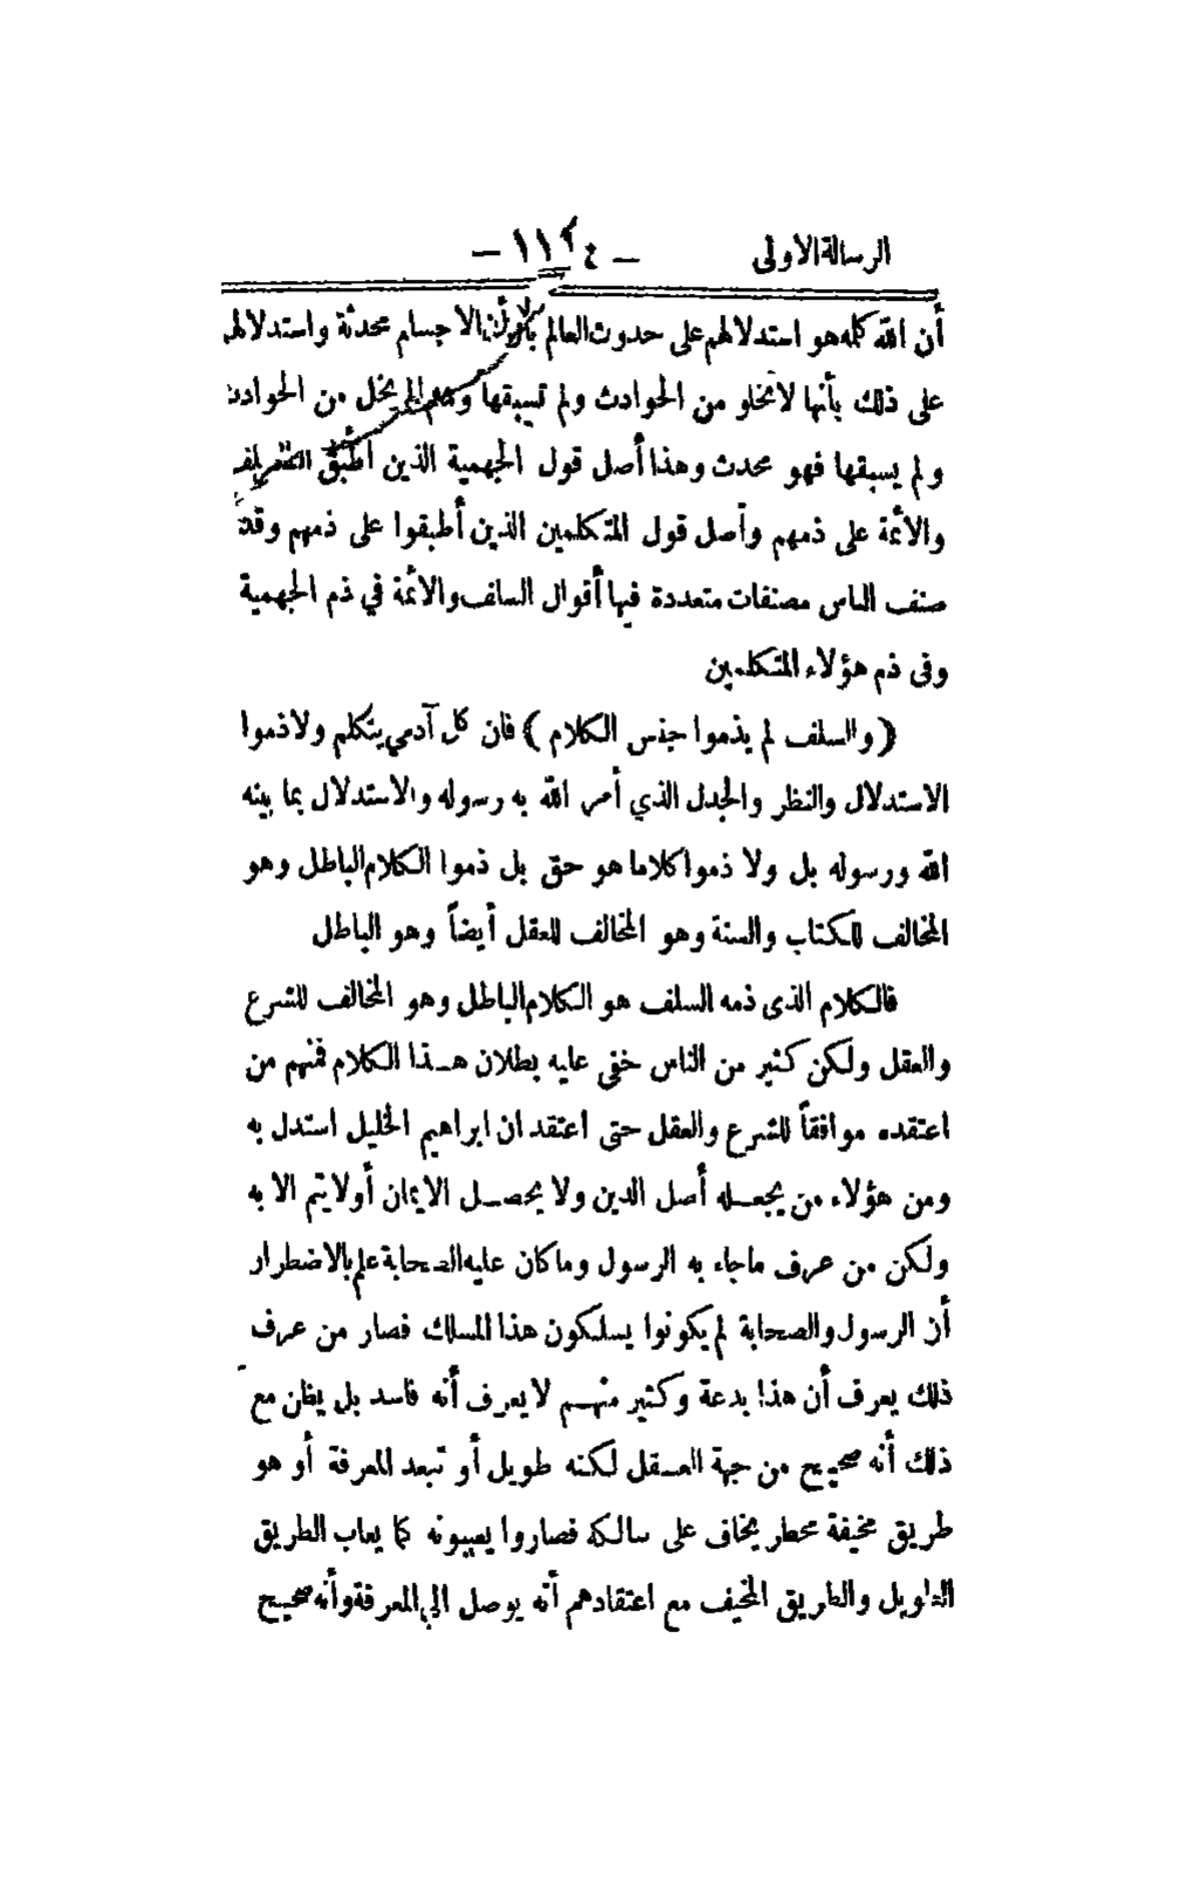 الرسالة الاولى
أن الله كله هو استدلالهم على حدوث العالم الاجسام محدثة واستدلالهم
على ذلك بأنها لا تخلو من الحوادث ولم تسبقها يخل من الحوادث
ولم يسبقها فهو محدث وهذا أصل قول الجهمية الذين أطبق
والائمة على ذمهم وأصل قول المتكلمين الذين أطبقوا على ذمهم وقد
صنف الناس مصنفات متعددة فيها أقوال السلف والائمة في ذم الجهمية
وفى ذم هؤلاء المتكلمين
(والسلف لم يذموا جنس الكلام) فان كل آدمي يتكلم ولا ذموا
الاستدلال والنظر والجدل الذي أمر الله به رسوله والاستدلال بما بينه
الله ورسوله بل ولا ذموا كلاما هو حق بل ذموا الكلام الباطل وهو
المخالف للكتاب والسنة وهو المخالف للعقل أيضاً وهو الباطل
فالكلام الذى ذمه السلف هو الكلام الباطل وهو المخالف للشرع
والعقل ولكن كثير من الناس خفي عليه بطلان هـذا الكلام فمنهم من
اعتقده موافقاً للشرع والعقل حتى اعتقد ان ابراهيم الخليل استدل به
ومن هؤلاء من يجعـله أصل الدين ولا يحصـل الايمان أو لا يتم الا به
ولكن من عرف ما جاء به الرسول وما كان عليه الصحابة علم بالاضطرار
أن الرسول والصحابة لم يكونوا يسلكون هذا المسلك فصار من عرف
ذلك يعرف أن هذا بدعة وكثير منهـم لا يعرف أنه فاسد بل يظن مع
ذلك أنه صحيح من جهة العـقل لكنه طويل أو تبعد المعرفة أو هو
طريق مخيفة مخطر يخاف على سالكه فصاروا يعيبونه كما يعاب الطريق
الطويل والطريق المخيف مع اعتقادهم أنه يوصل الى المعرفة وأنه صحيح